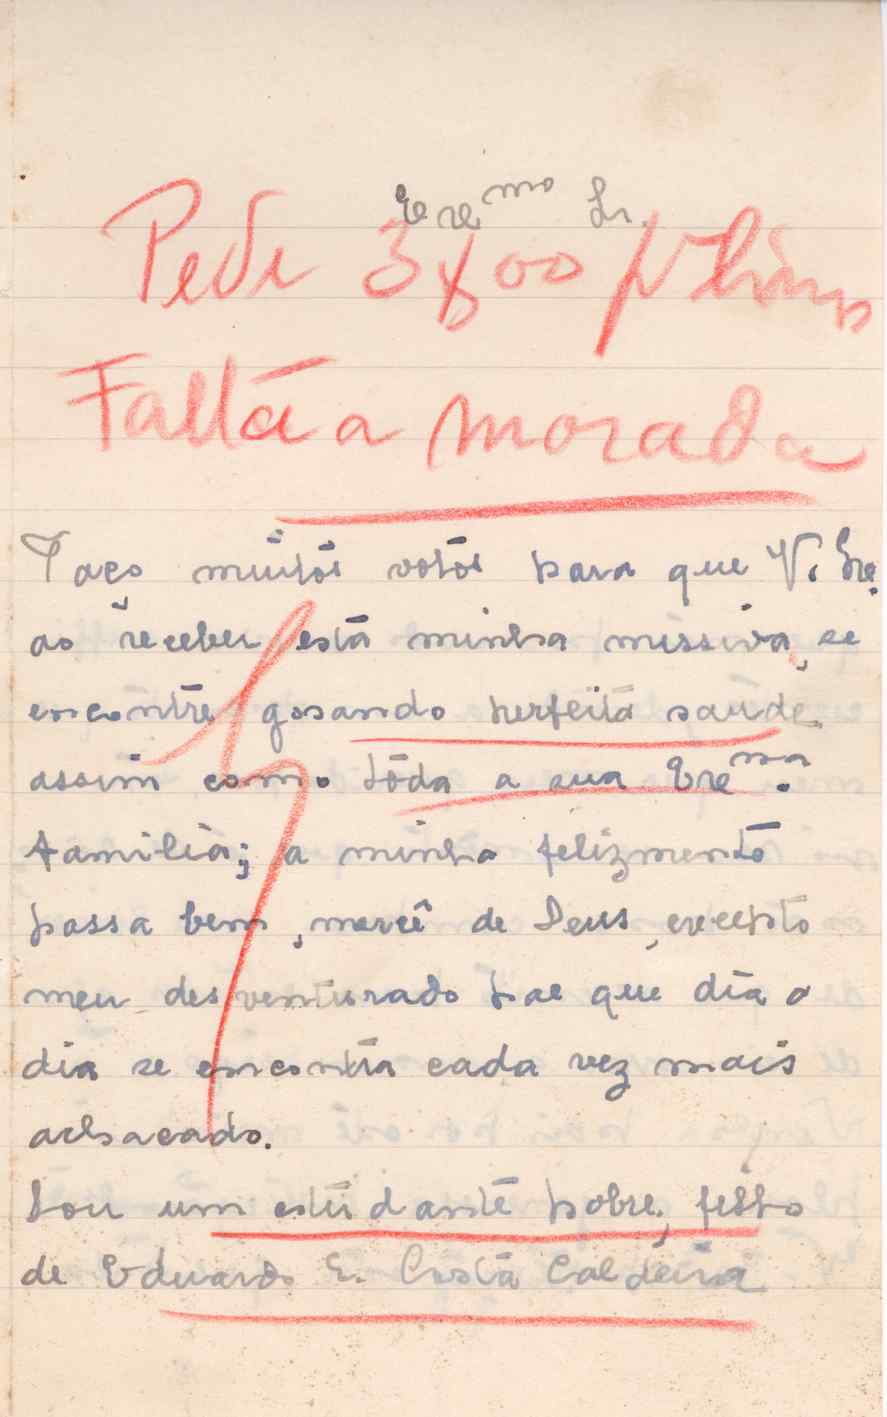 Exemo Sr.
Pede 3$00 p/ livros
Falta a morada
Faço muitos votos para que V. Exe.
ao receber esta minha missiva, se
encontre gosando perfeita saude
assim como tôda a sua Exema.
familia; a minha felizmente
passa bem, mercê de Deus, excepto
meu desventurado pae que dia a
dia se encontra cada vez mais
achacado.
Sou um estudante pobre, filho
de Eduardo E. Costa Caldeira